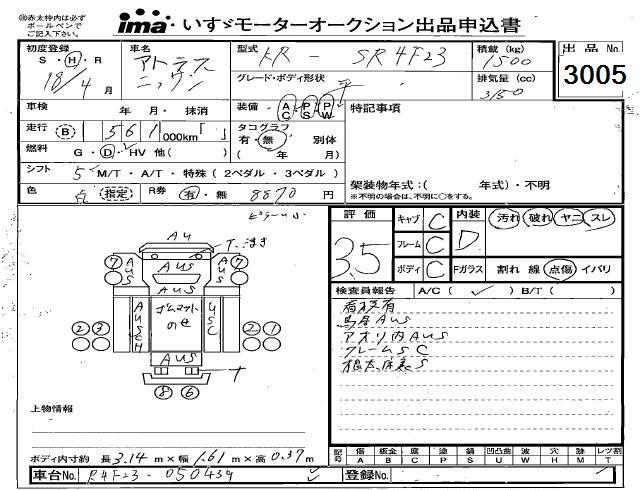 ㊟赤太枠内は必ず
ボールペンで
ご記入下さい。
ima いすゞモーターオークション出品申込書
初度登録 S・H・R 18/4月
車名 アトラス ニッサン
型式 KR - SR4F23
積載(kg) 1500
出品No. 3005
グレード・ボディ形状 平
排気量(cc) 3150
車検 年 月・抹消
装備・AC・PS・PW
特記事項
走行 B 561,000km「 」
タコグラフ 有・無 別体 ( 年 月)
燃料 G・D・HV 他( )
シフト 5 M/T・A/T・特殊(2ペダル・3ペダル)
架装物年式:( 年式)・不明
※不明の場合は、不明に○をする。
色 白 指定 R券 有・無 8870円
評価 3.5
キャブ C
フレーム C
ボディ C
内装 D
汚れ 破れ ヤニ スレ
Fガラス 割れ 線 点傷 イバリ
検査員報告 A/C( ✓ ) B/T( )
看板有
鳥居AUS
アオリ内AUS
フレームSC
根太床裏S
AU
AUS
7
AUS
7
AUS
AUSCH
ゴムマットのせ
USC
2 3
2 1
AUS
T
8 6
上物情報
ボディ内寸約 長3.14m×幅1.61m×高0.37m
記号 傷A 板金B 腐C 塗P 錆S 凹凸曲U 波W 穴H 跡M レツ割T
車台No. R4F23-050439
登録No.